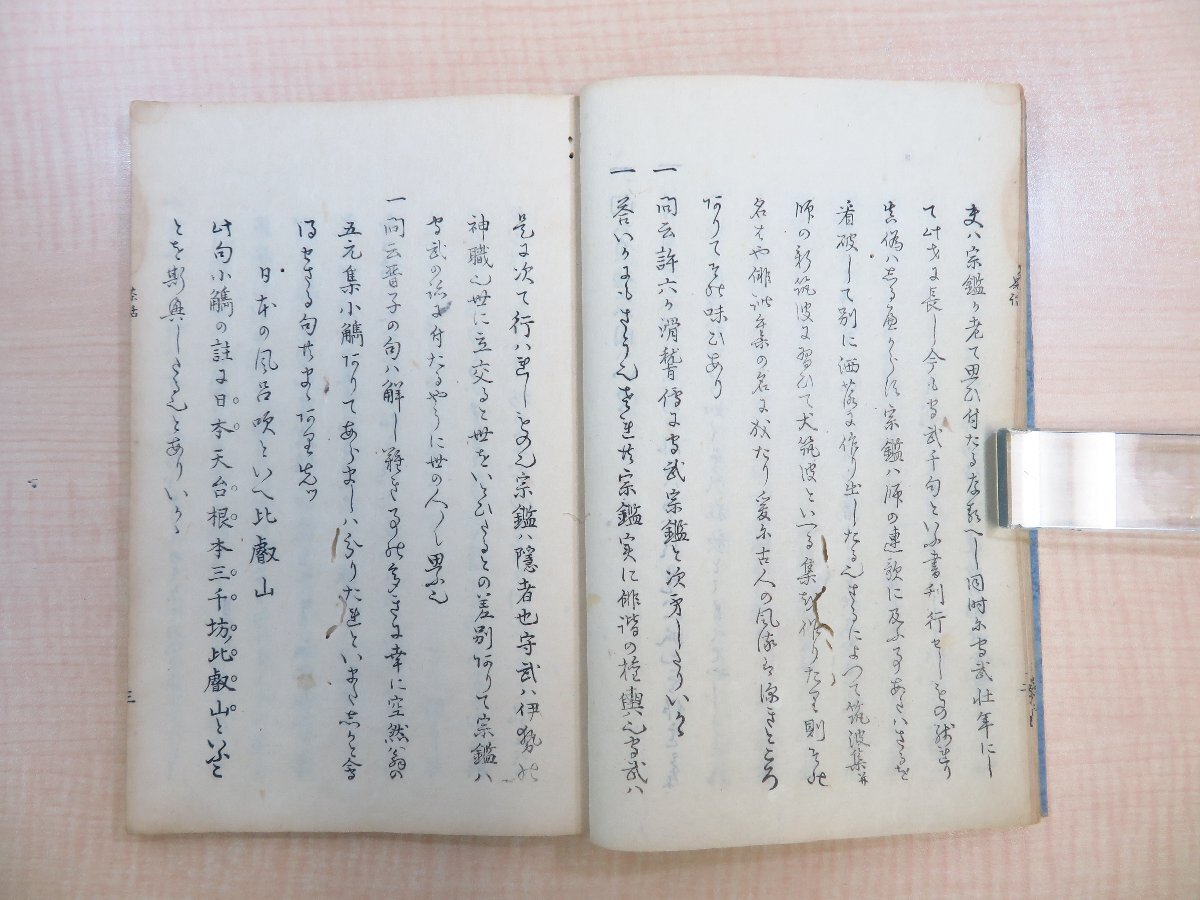 夫ハ宗鑑か老て思ひ付たるなるへし同時に守武壮年にし
て此道に長し今も守武千句といふ書刊行せしもの残れり
真偽ハしるへからす宗鑑ハ師の連歌に及ふ事あたハさるを
看破して別に洒落に作り出したる也さるによつて筑波集并
師の新筑波に習ひて犬筑波といへる集を作りたり則その
名もや俳諧集の名に成たり爰に古人の風流も深きところ
ありてその味ひあり
一 問云許六か滑稽傳に守武宗鑑と次第したりいかゝ
一 答いかにもさう也されは宗鑑実に俳諧の権輿也守武ハ
是に次て行ハれしもの也宗鑑ハ隠者也守武ハ伊勢の
神職也世に立交ると世をいとひたるとの差別ありて宗鑑ハ
守武の跡に付たるやうに世の人々し思ふ也
一 問云晋子の句ハ解し難き事の多きに幸に空然翁の
五元集小觿ありてあらましハ分りたれといまた会
得せさる句
日本の風呂吹といへ比叡山
此句小觿の註に日本天台根本三千坊比叡山といふこ
とを斯興したる也とありいかゝ
茶話
三